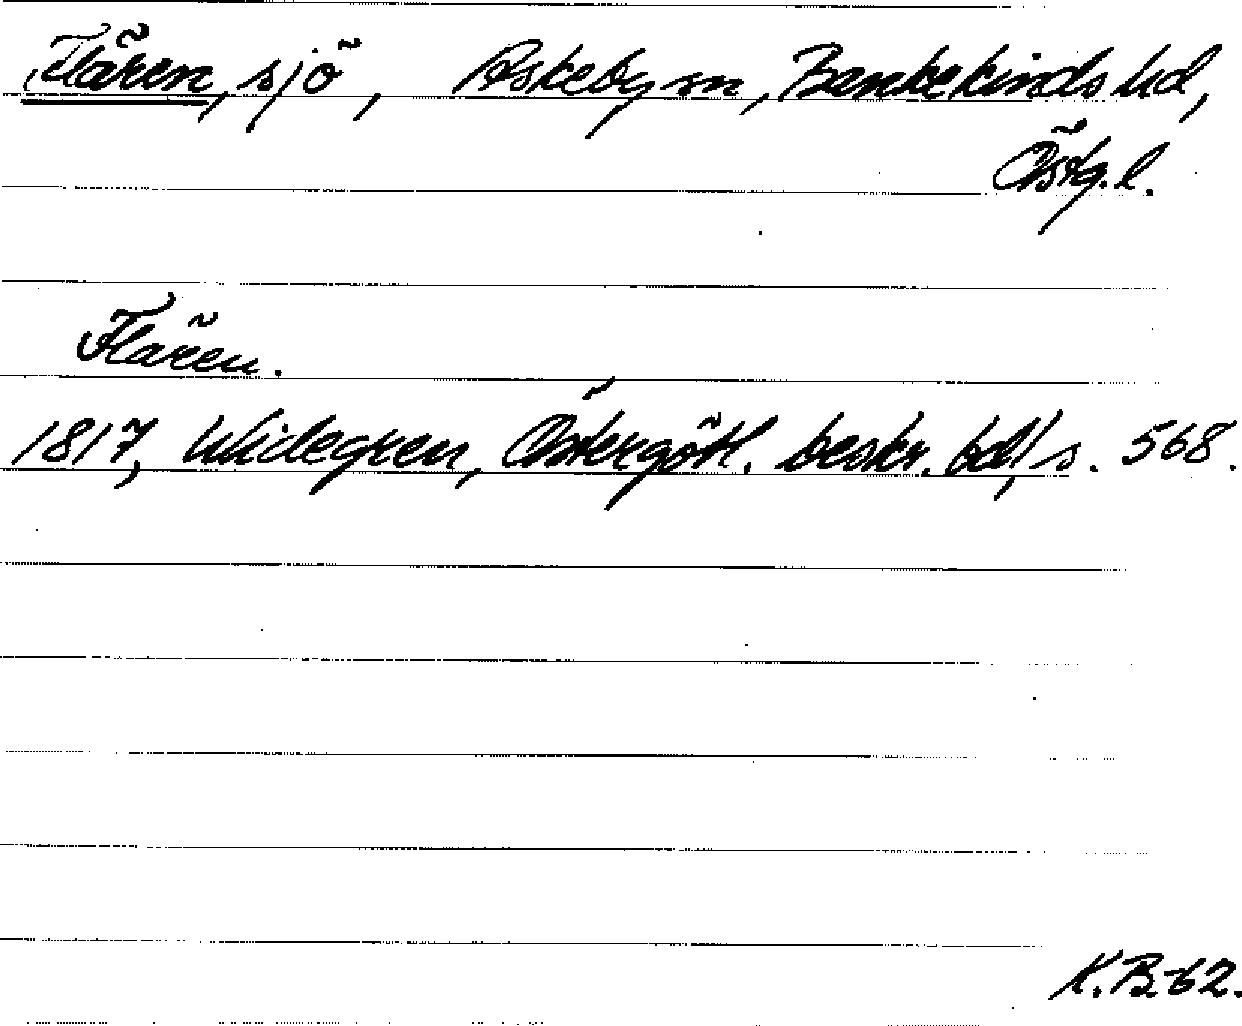 Flären, sjö, Askeby sn, Bankekinds hd,
Östg. l.
Flären.
1817, Widegren, Östergötl. beskr. bd I, s. 568.
K.B-62.